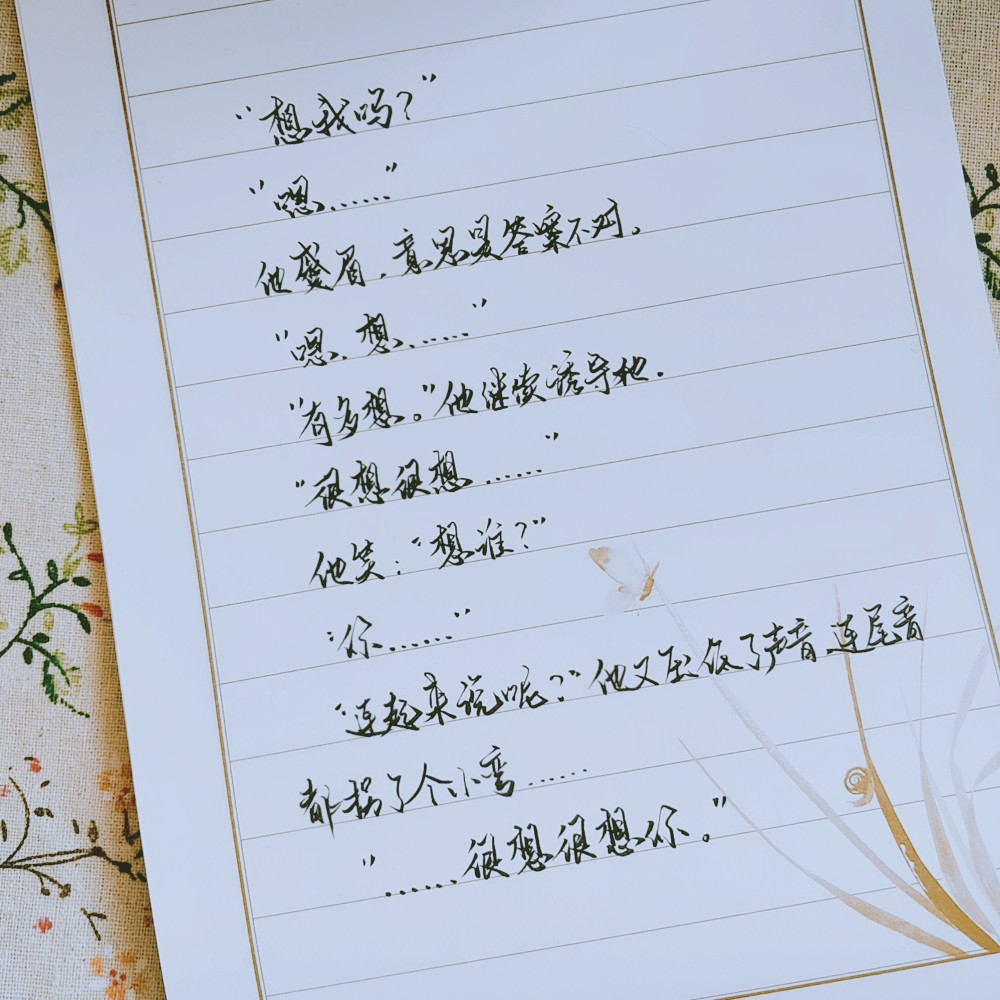 “想我吗？”
“嗯……”
他蹙眉，意思是答案不对。
“嗯，想……”
“有多想。”他继续诱导她.
“很想很想……”
他笑：“想谁？”
“你……”
“连起来说呢？”他又压低了声音，连尾音
都拐了个小弯……
“……很想很想你。”